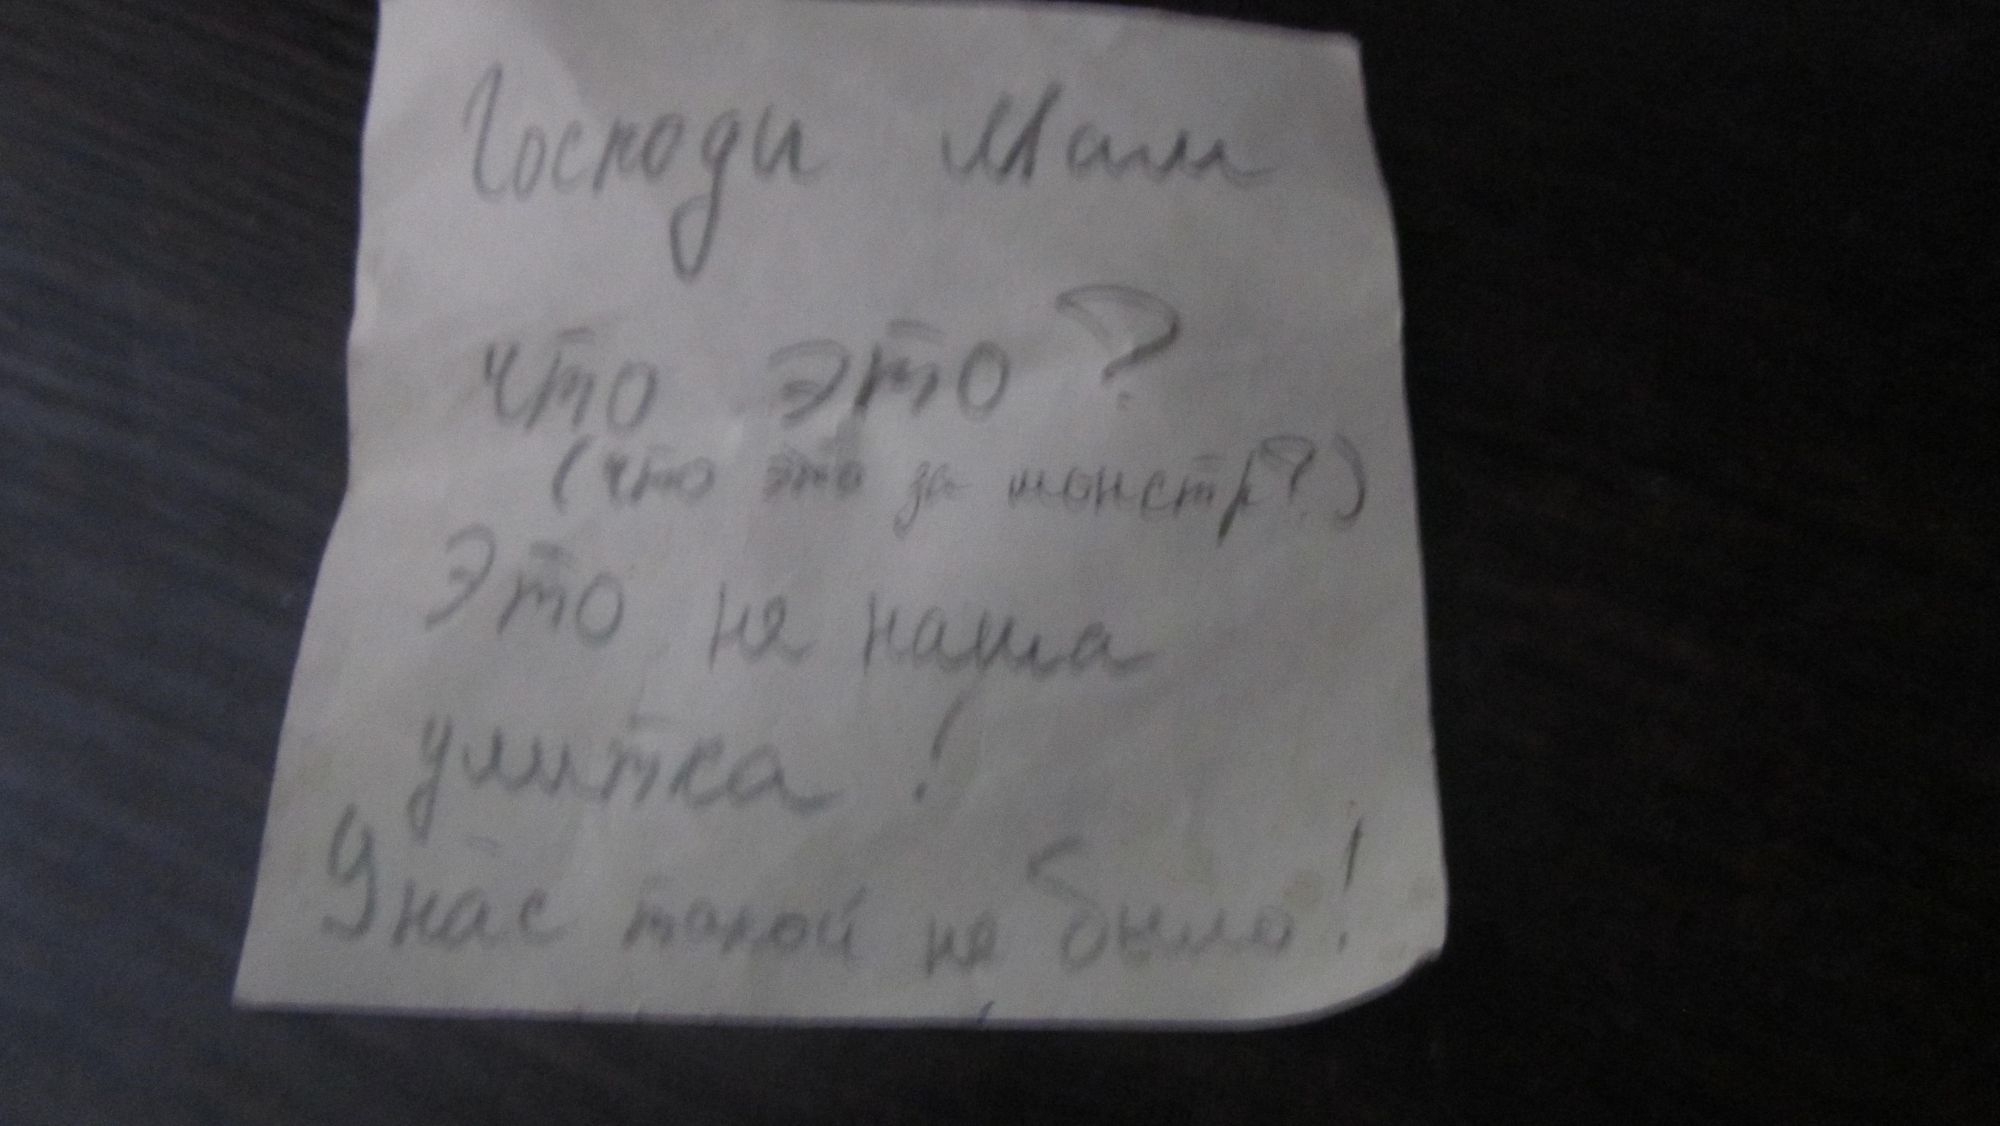 Господи Мам
что это?
(что это за монстр?)
Это не наша
улитка!
У нас такой не было!